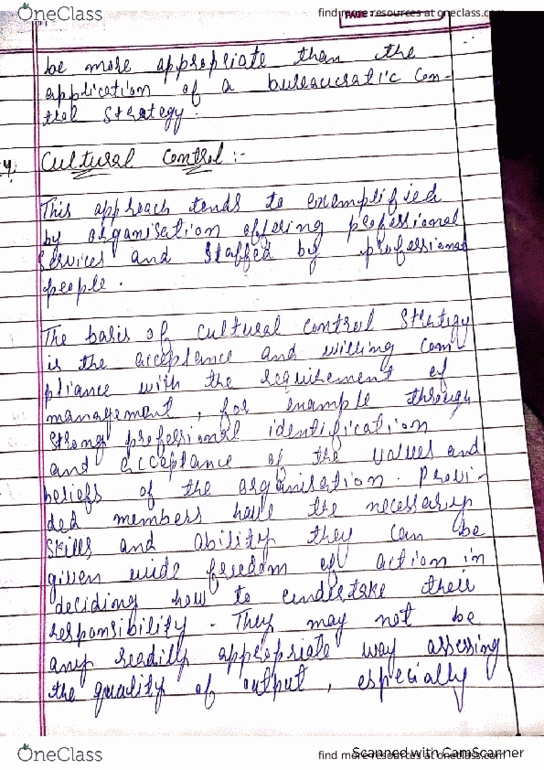 OneClass
find more resources at oneclass.com
be more appropriate than the
application of a bureaucratic con-
trol strategy.
4. Cultural Control :-
This approach tends to exemplified
by organisation offering professional
services and staffed by professional
people.
The basis of cultural control strategy
is the acceptance and willing com-
pliance with the requirement of
management, for example through
strong professional identification
and acceptance of the values and
beliefs of the organisation. Provi-
ded members have the necessary
skills and ability they can be
given wide freedom of action in
deciding how to undertake their
responsibility. They may not be
any readily appropriate way assessing
the quality of output, especially
OneClass
find more resources at oneclass.com
Scanned with CamScanner